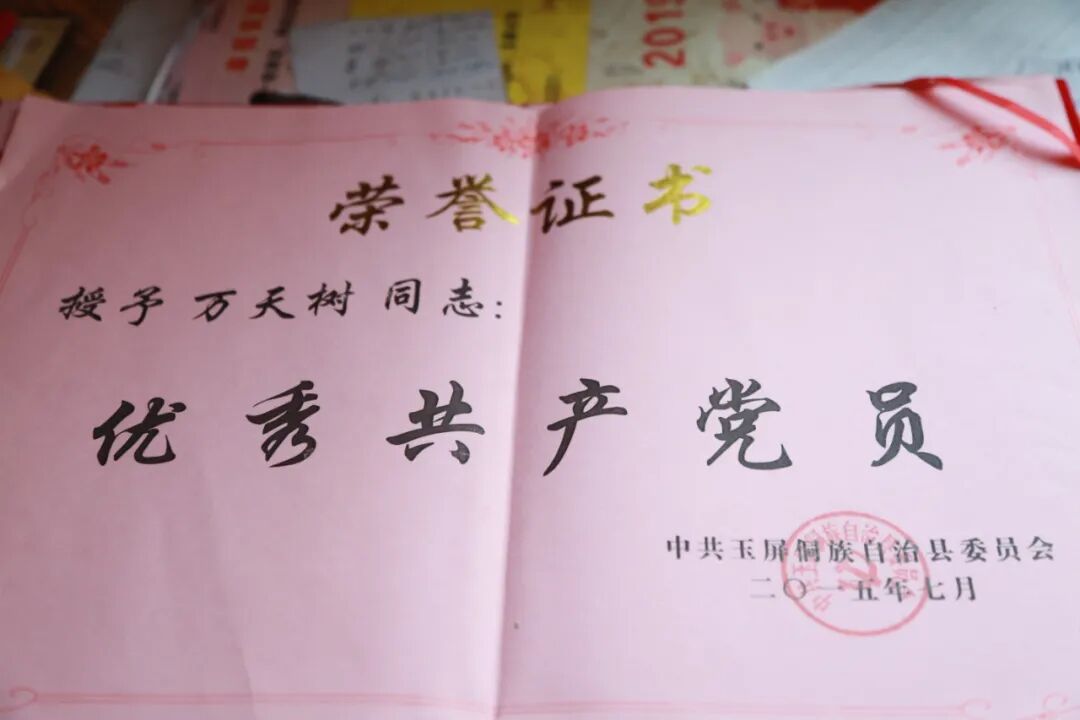 2015
荣誉证书
授予 万天树 同志：
优秀共产党员
中共玉屏侗族自治县委员会
二〇一五年七月